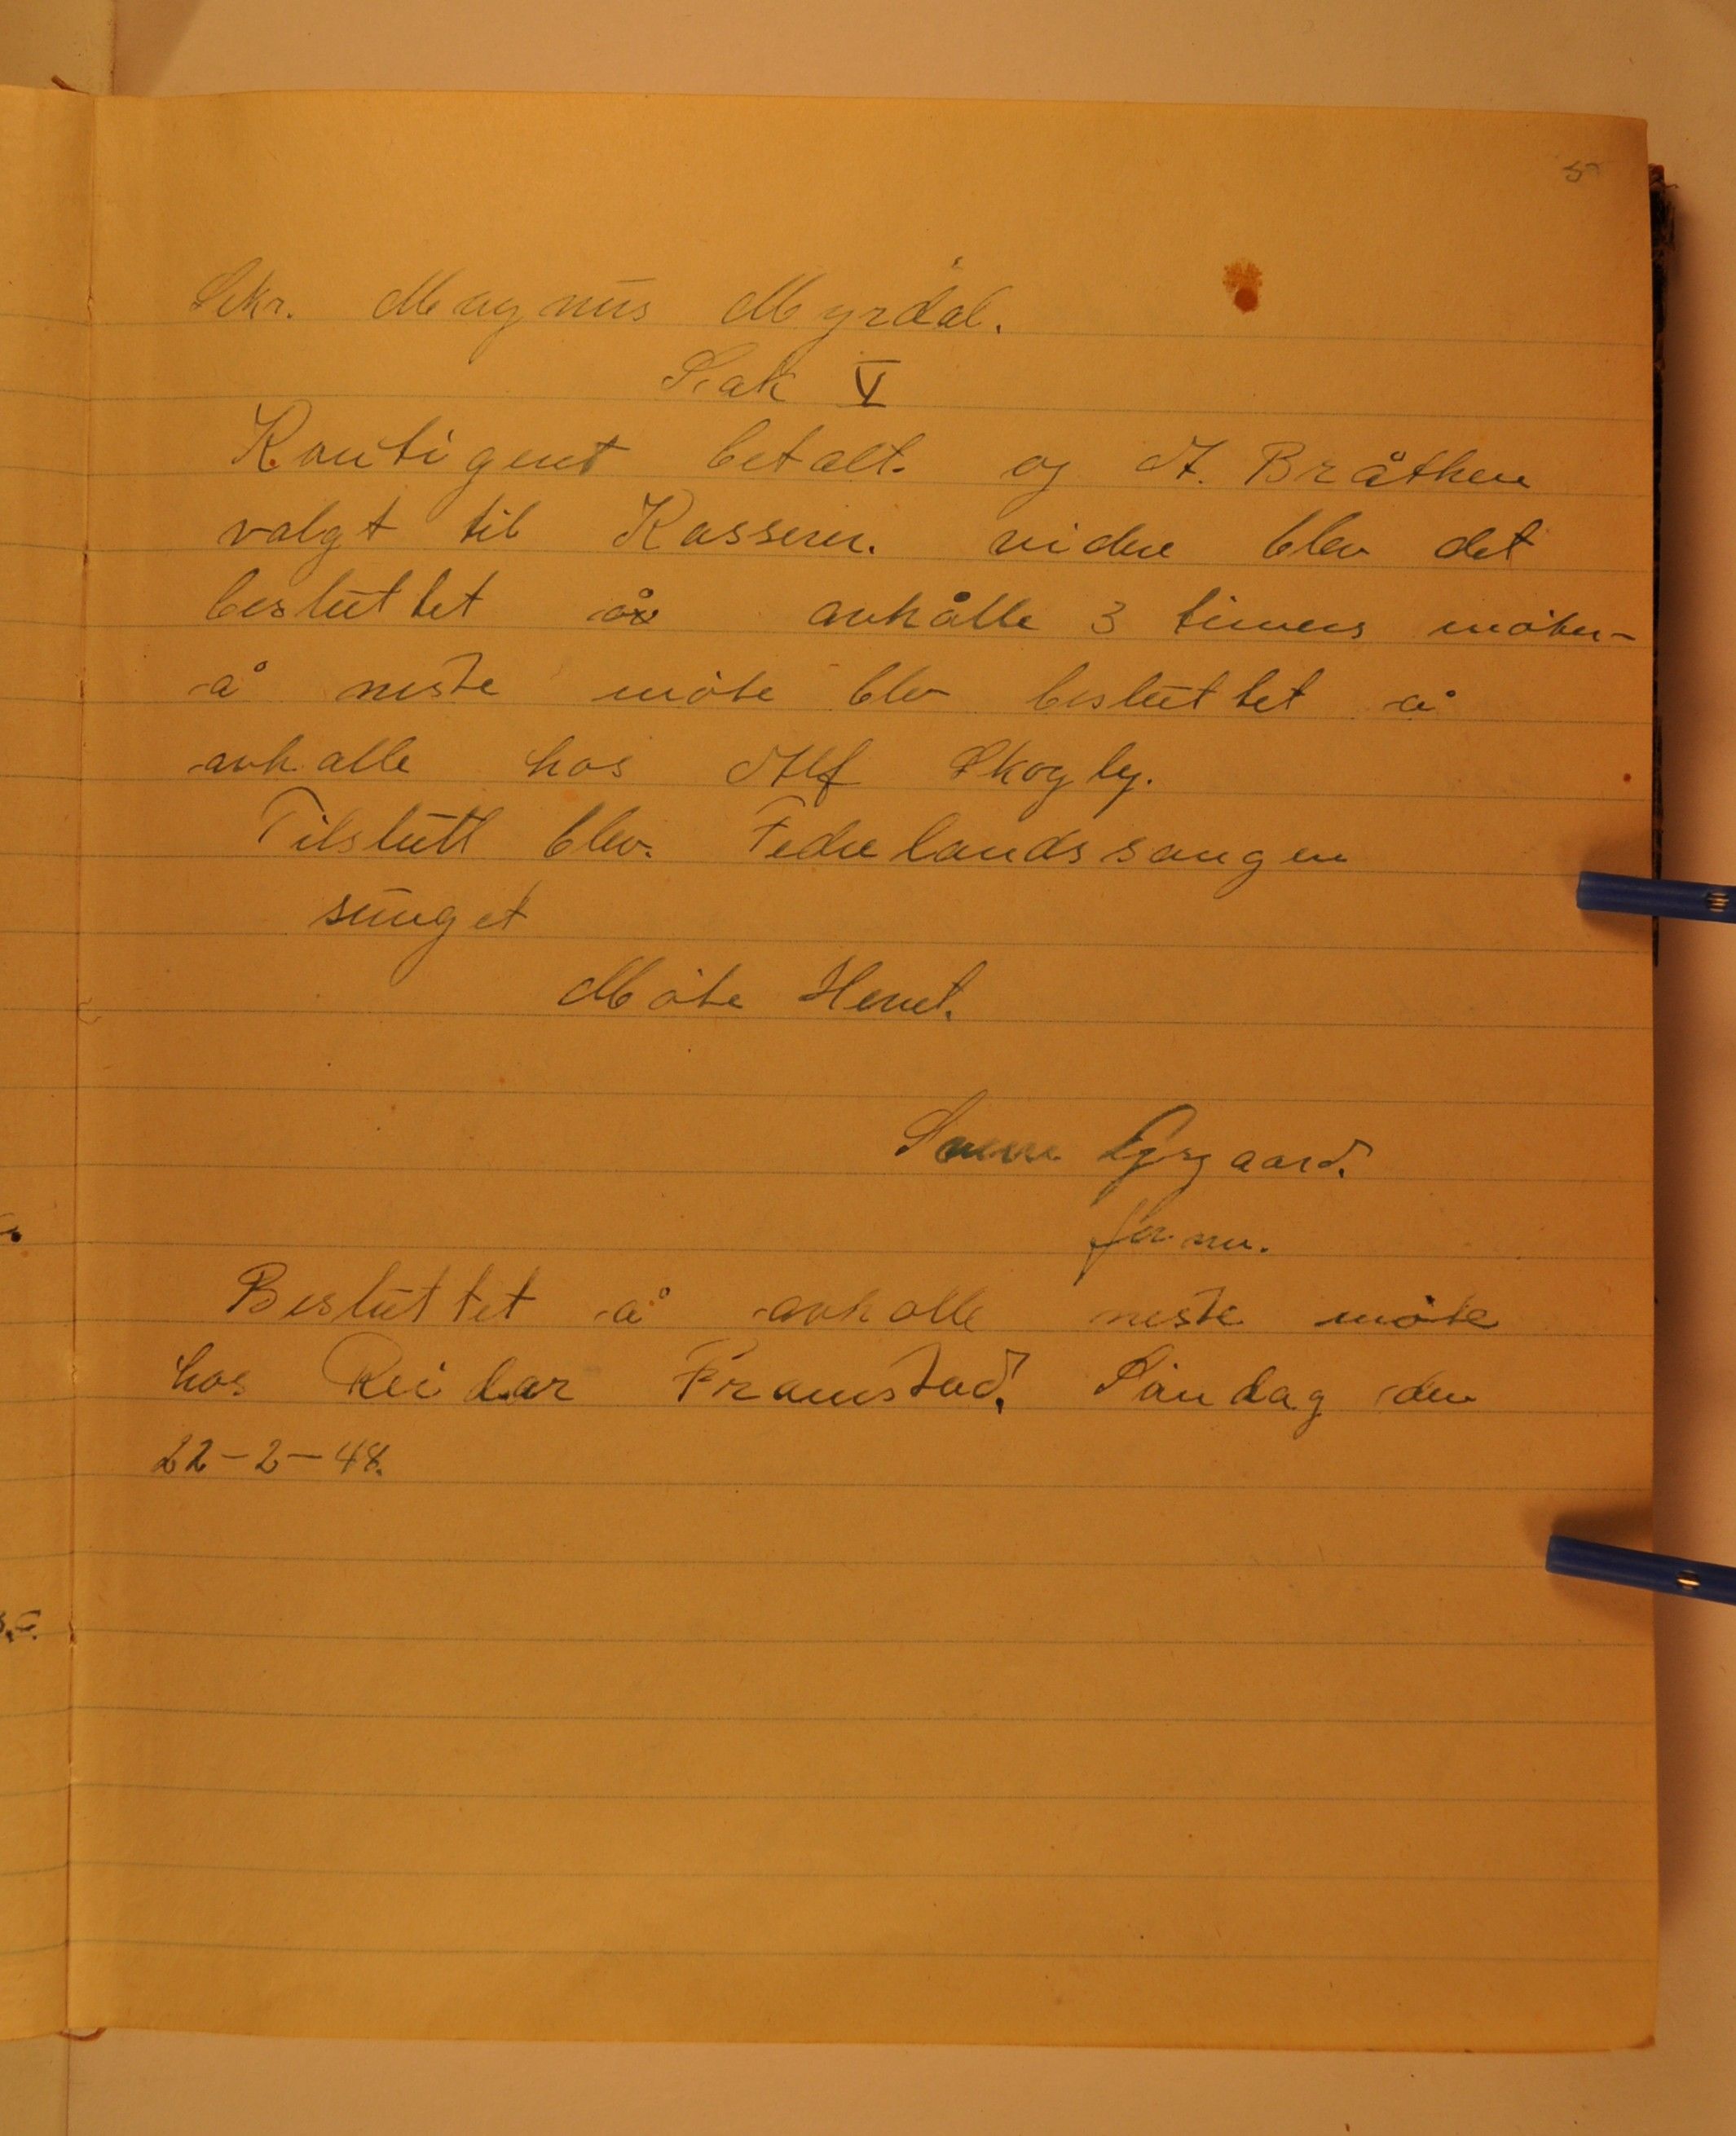 5
Sekr. Magnus Myrdal.
Sak V
Kontigent betalt. og A. Bråthen
valgt til Kasserer. videre blev det
besluttet å avhålle 3 timers møter-
å neste møte blev besluttet å
avhalle hos Alf Skogly.
Tilslutt blev. Fedrelandssangen
sunget
Møte Hevet.
Sverre
form.
Besluttet å avholle neste møte
hos Reidar Framstad. Søndag den
22-2-48.